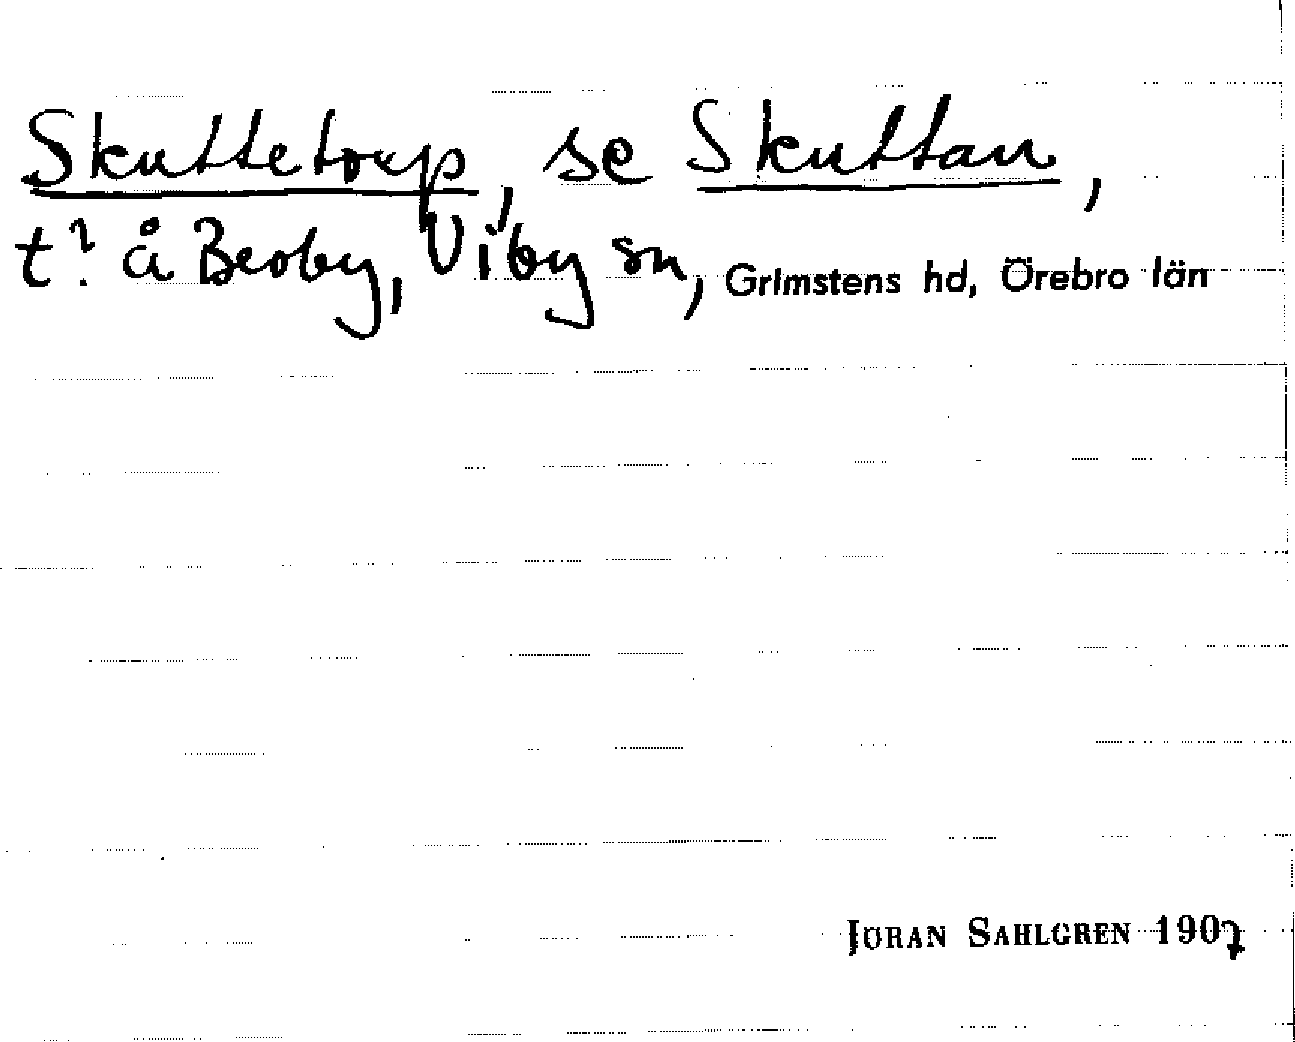 Skuttetorp, se Skuttan,
t? å Beoby, Viby sn, Grimstens hd, Örebro län
JÖRAN SAHLGREN 1907